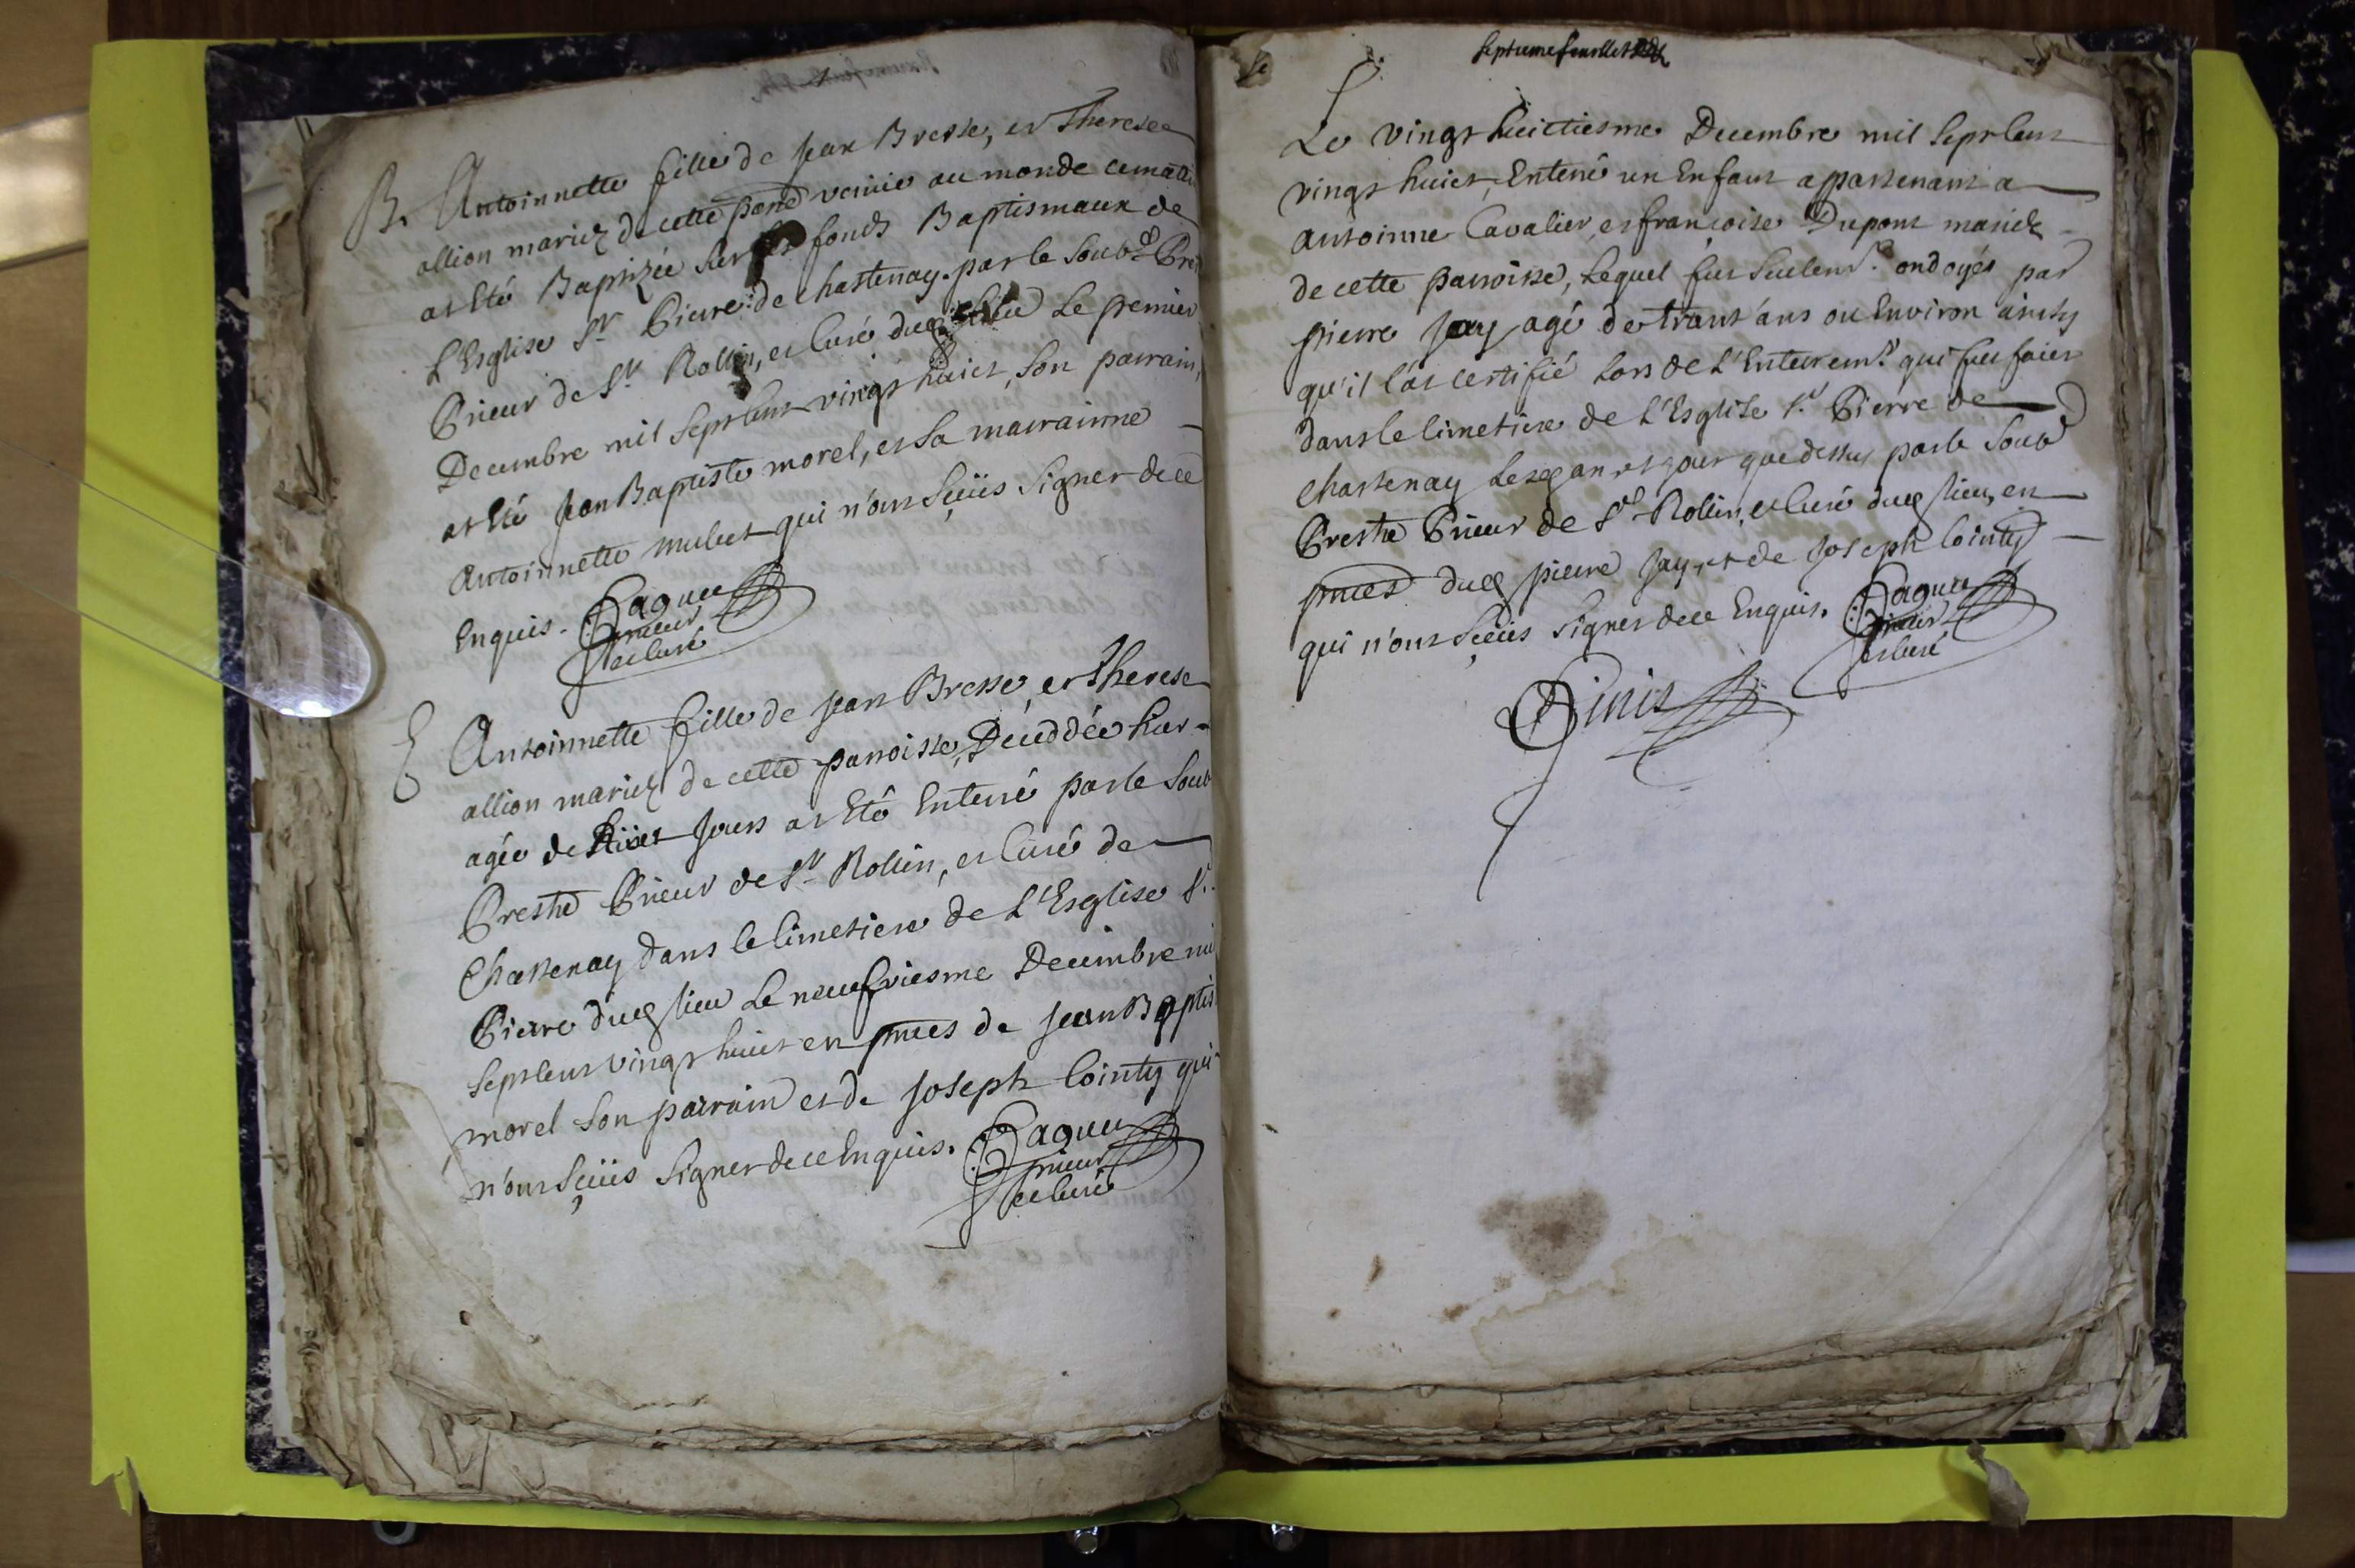 B. Antoinnette fille de Jean Bresse, et Therese
allion mariez de cette parse venüe au monde ce matin
at Eté Baptizée sur les fonds Baptismaux de
L'Esglise St Pierre de chastenay par le soubd Pre
Prieur de St Rollin, et Curé dud lieu Le premier
Decembre mil sept cent vingt huict, son parrain,
at Eté Jean Baptiste morel, et sa marrainne
Antoinnette mulet qui n'ont sçeüs signer de ce
Enquis. Paguet
prieur
et curé
E Antoinnette fille de Jean Bresse, et Therese
allion mariez de cette parroisse, Deceddée hier
agée de huict Jours at Eté Enterré par le soub
Prestre Prieur de St Rollin, et Curé de
Chastenay dans le Cimetiere de L'Esglise St
Pierre dud lieu Le neufviesme Decembre mil
sept cent vingt huict en pnces de Jean Baptis
morel son parrain et de Joseph Cointy qui
n'ont sçeüs signer de ce Enquis. Paguet
prieur
et curé
septieme feuillet
Le vingt huictiesme Decembre mil sept cent
vingt huict, Enterré un Enfant appartenant a
Antoinne Cavalier, et françoise Dupont mariez
de cette parroisse, Lequel fut seulemt ondoyés par
pierre Jay agé de trant'ans ou Environ ainsy
qu'il l'at certifié Lors de L'Enterremt qui fut faict
dans le Cimetiere de L'Esglise St Pierre de
Chastenay Lesd an et jour que dessus par le soubd
Prestre Prieur de St Rollin, et Curé dud lieu, en
pnces dud pierre Jay, et de Joseph Cointy
qui n'ont sçeüs signer de ce Enquis. Paguet
prieur
et curé
Finis